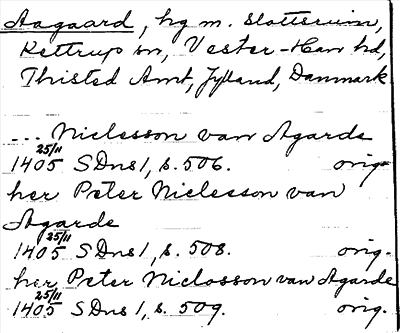 Aagaard, hg m. slottsruin,
Kettrup sn, Vester-Han hd,
Thisted Amt, Jylland, Danmark
... Niclesson van Agarde
25/11
1405 SDns 1, s. 506. orig.
her Peter Niclesson van
Agarde
25/11
1405 SDns 1, s. 508. orig.
her Peter Niclosson van Agarde
25/11
1405 SDns 1, s. 509. orig.